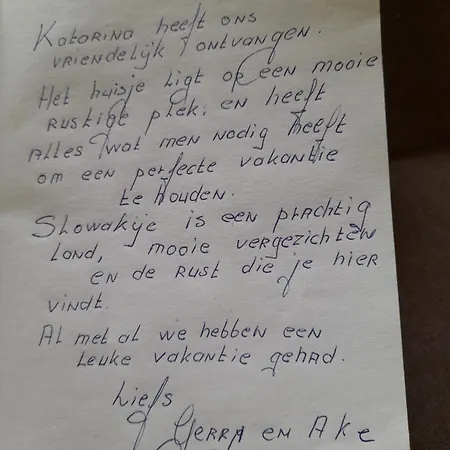 Katarina heeft ons
vriendelijk ontvangen.
Het huisje ligt op een mooie
rustige plek, en heeft
alles wat men nodig heeft
om een perfecte vakantie
te houden.
Slowakije is een prachtig
land, mooie vergezichten
en de rust die je hier
vindt.
Al met al we hebben een
leuke vakantie gehad.
Liefs
Gerra en Ake